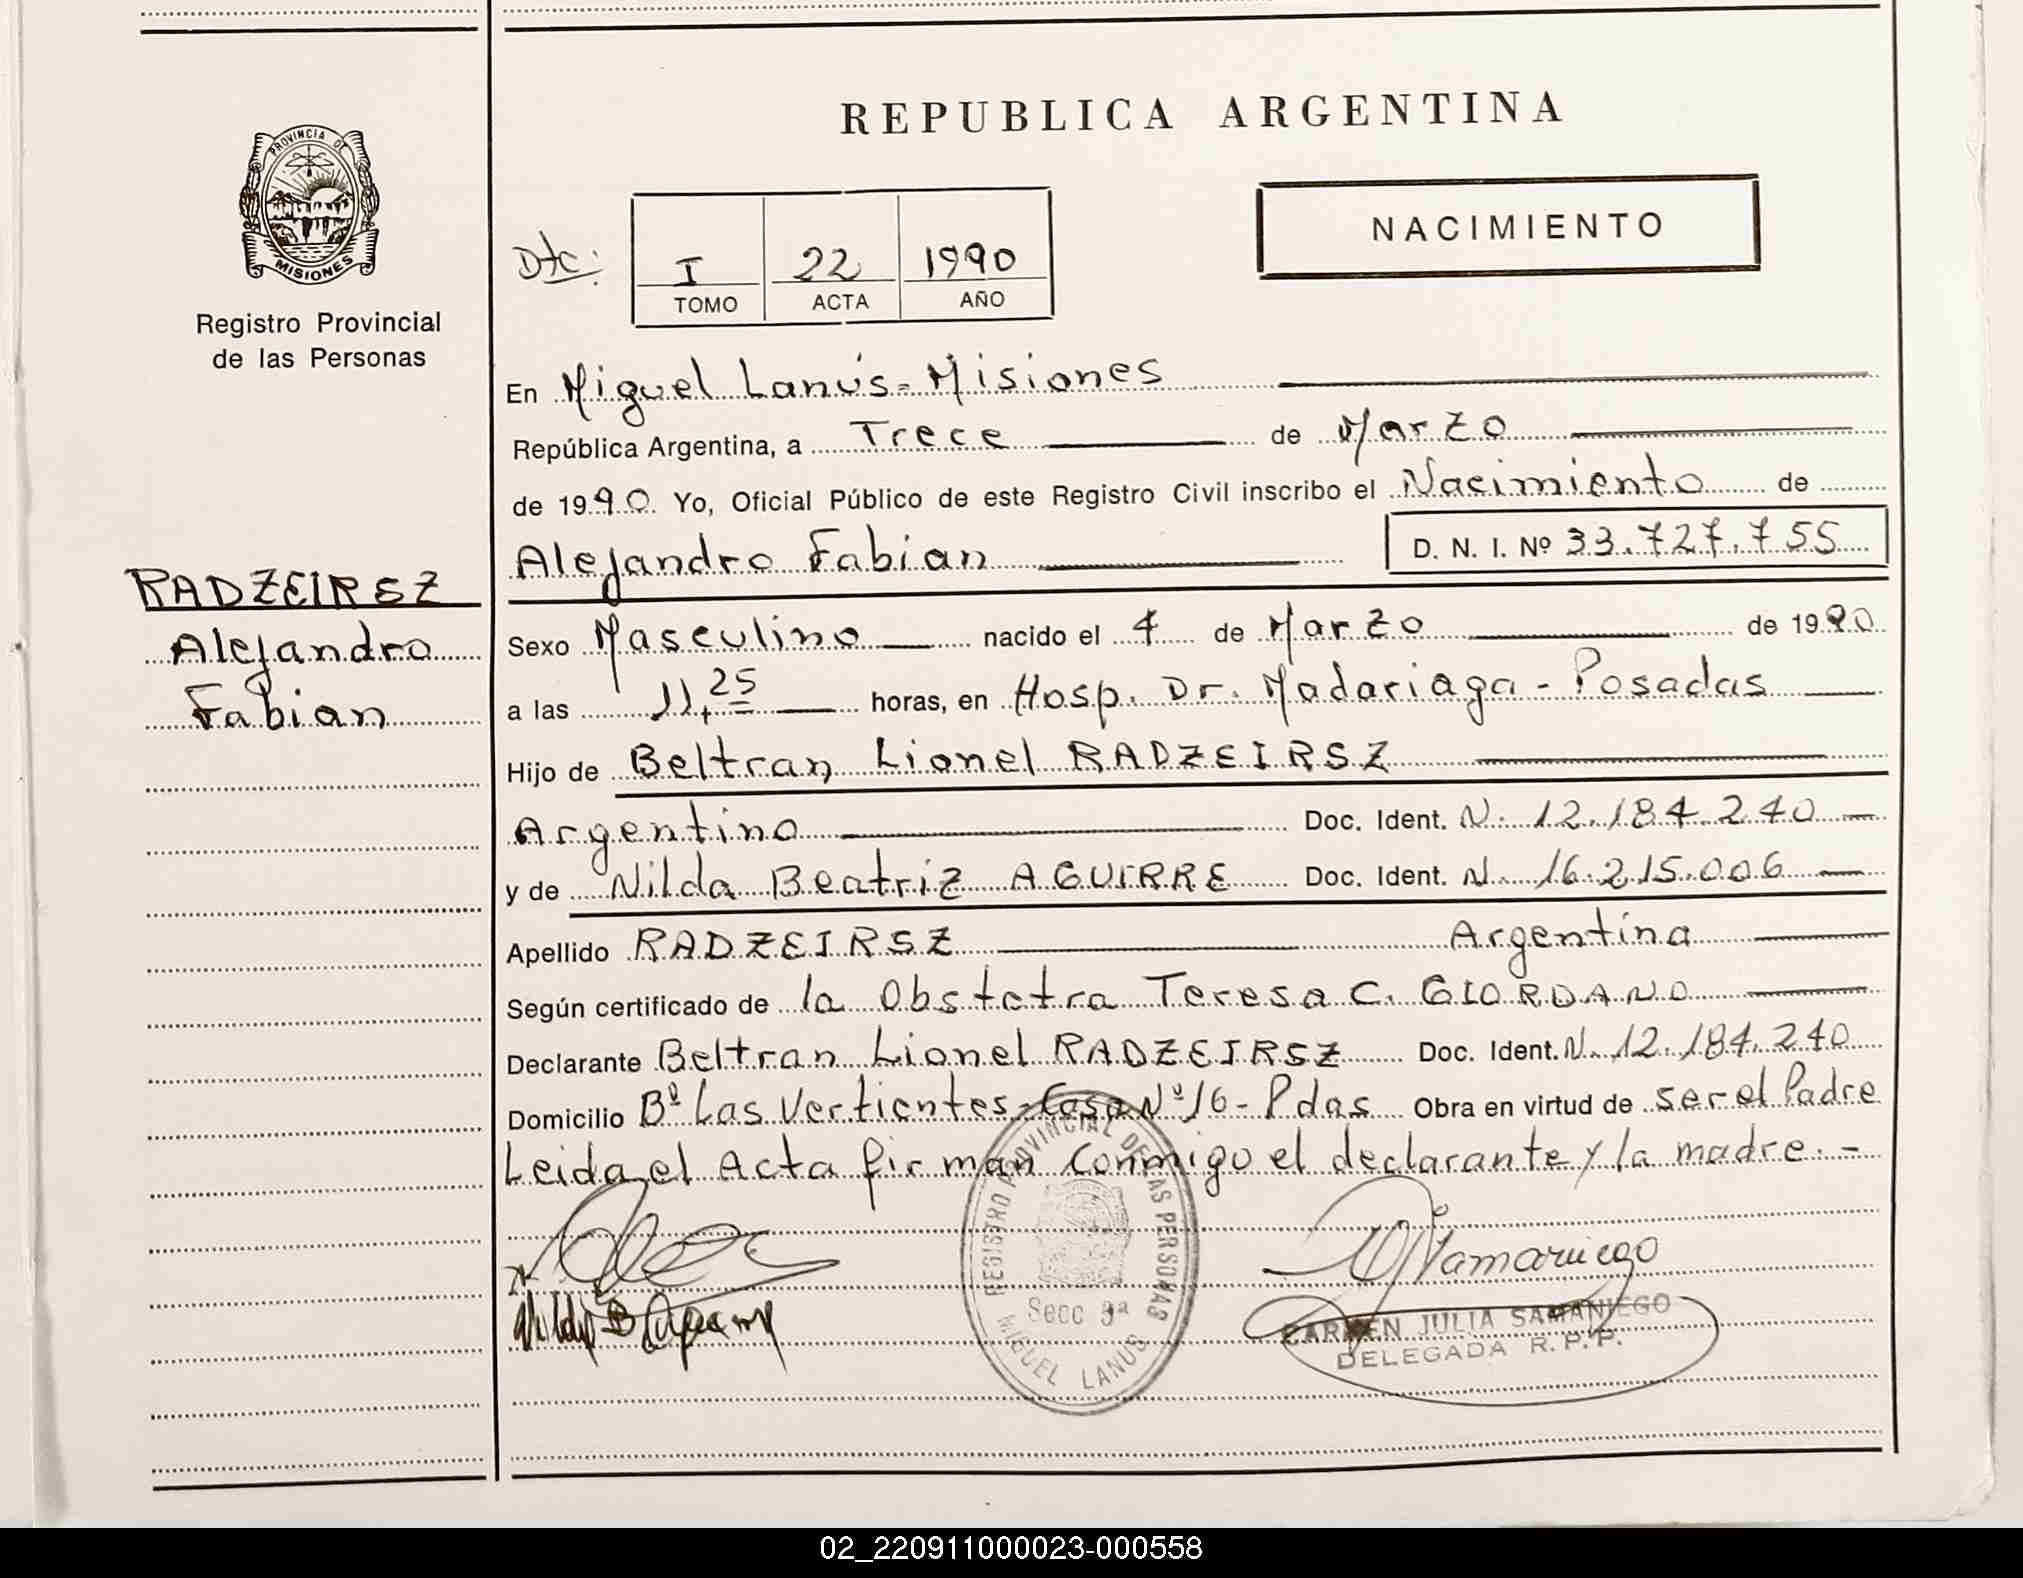 PROVINCIA DE
MISIONES
Registro Provincial
de las Personas
RADZEIRSZ
Alejandro
Fabian
REPUBLICA ARGENTINA
NACIMIENTO
Dtc: I 22 1990
TOMO ACTA AÑO
En Miguel Lanús = Misiones
República Argentina, a Trece de Marzo
de 1990 Yo, Oficial Público de este Registro Civil inscribo el Nacimiento de
Alejandro Fabian D. N. I. Nº 33.727.755
Sexo Masculino nacido el 4 de Marzo de 1990
a las 11,25 horas, en Hosp. Dr. Madariaga - Posadas
Hijo de Beltran Lionel RADZEIRSZ
Argentino Doc. Ident. N. 12.184.240
y de Nilda Beatriz AGUIRRE Doc. Ident. N. 16.215.006
Apellido RADZEIRSZ Argentina
Según certificado de la Obstetra Teresa C. GIORDANO
Declarante Beltran Lionel RADZEIRSZ Doc. Ident. N. 12.184.240
Domicilio Bº Las Vertientes - Casa Nº 16 - Pdas Obra en virtud de ser el Padre
Leida el Acta firman conmigo el declarante y la madre. -
REGISTRO PROVINCIAL DE LAS PERSONAS
Secc 9ª
MIGUEL LANUS
Samaniego
CARMEN JULIA SAMANIEGO
DELEGADA R.P.P.
02_220911000023-000558